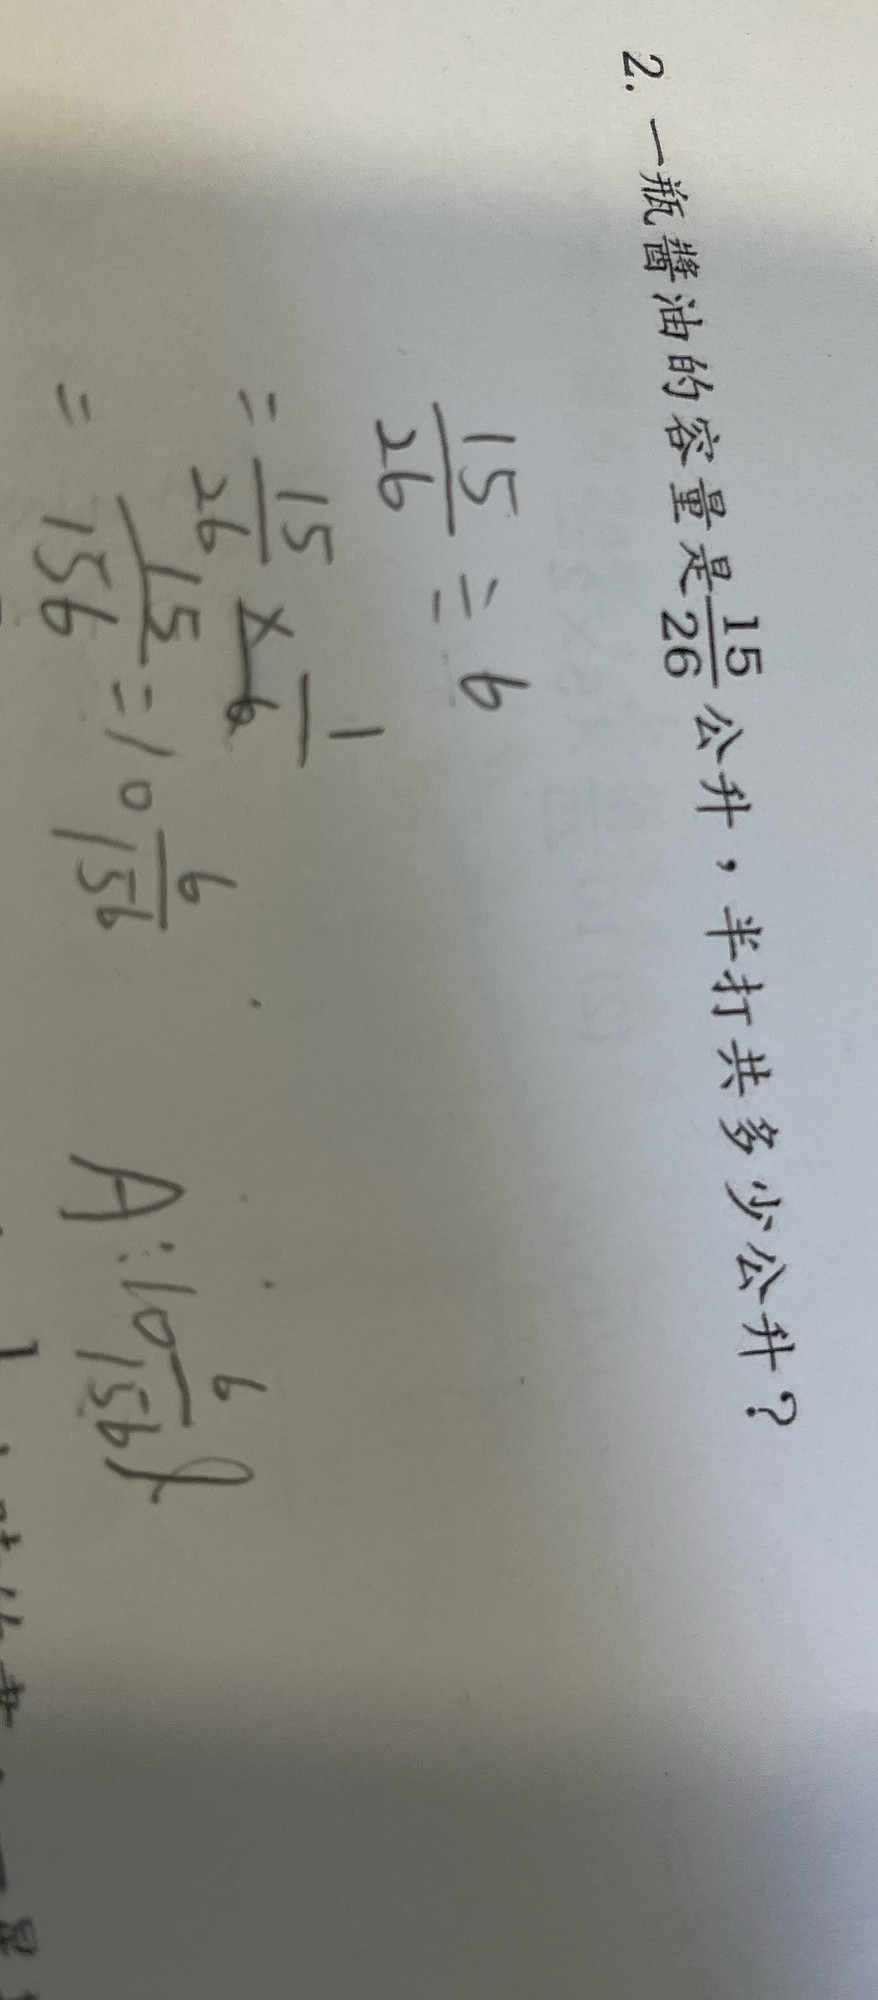 2. 一瓶醬油的容量是 15/26 公升，半打共多少公升？
15/26 = 6
= 15/26 × 1/6
= 15/156 = 10 6/156
A:10 6/156 l